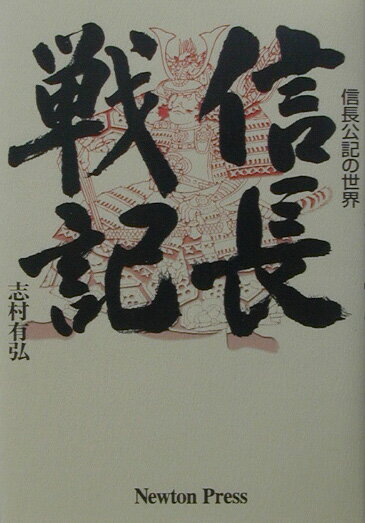 信長公記の世界
信長
戦記
志村有弘
Newton Press